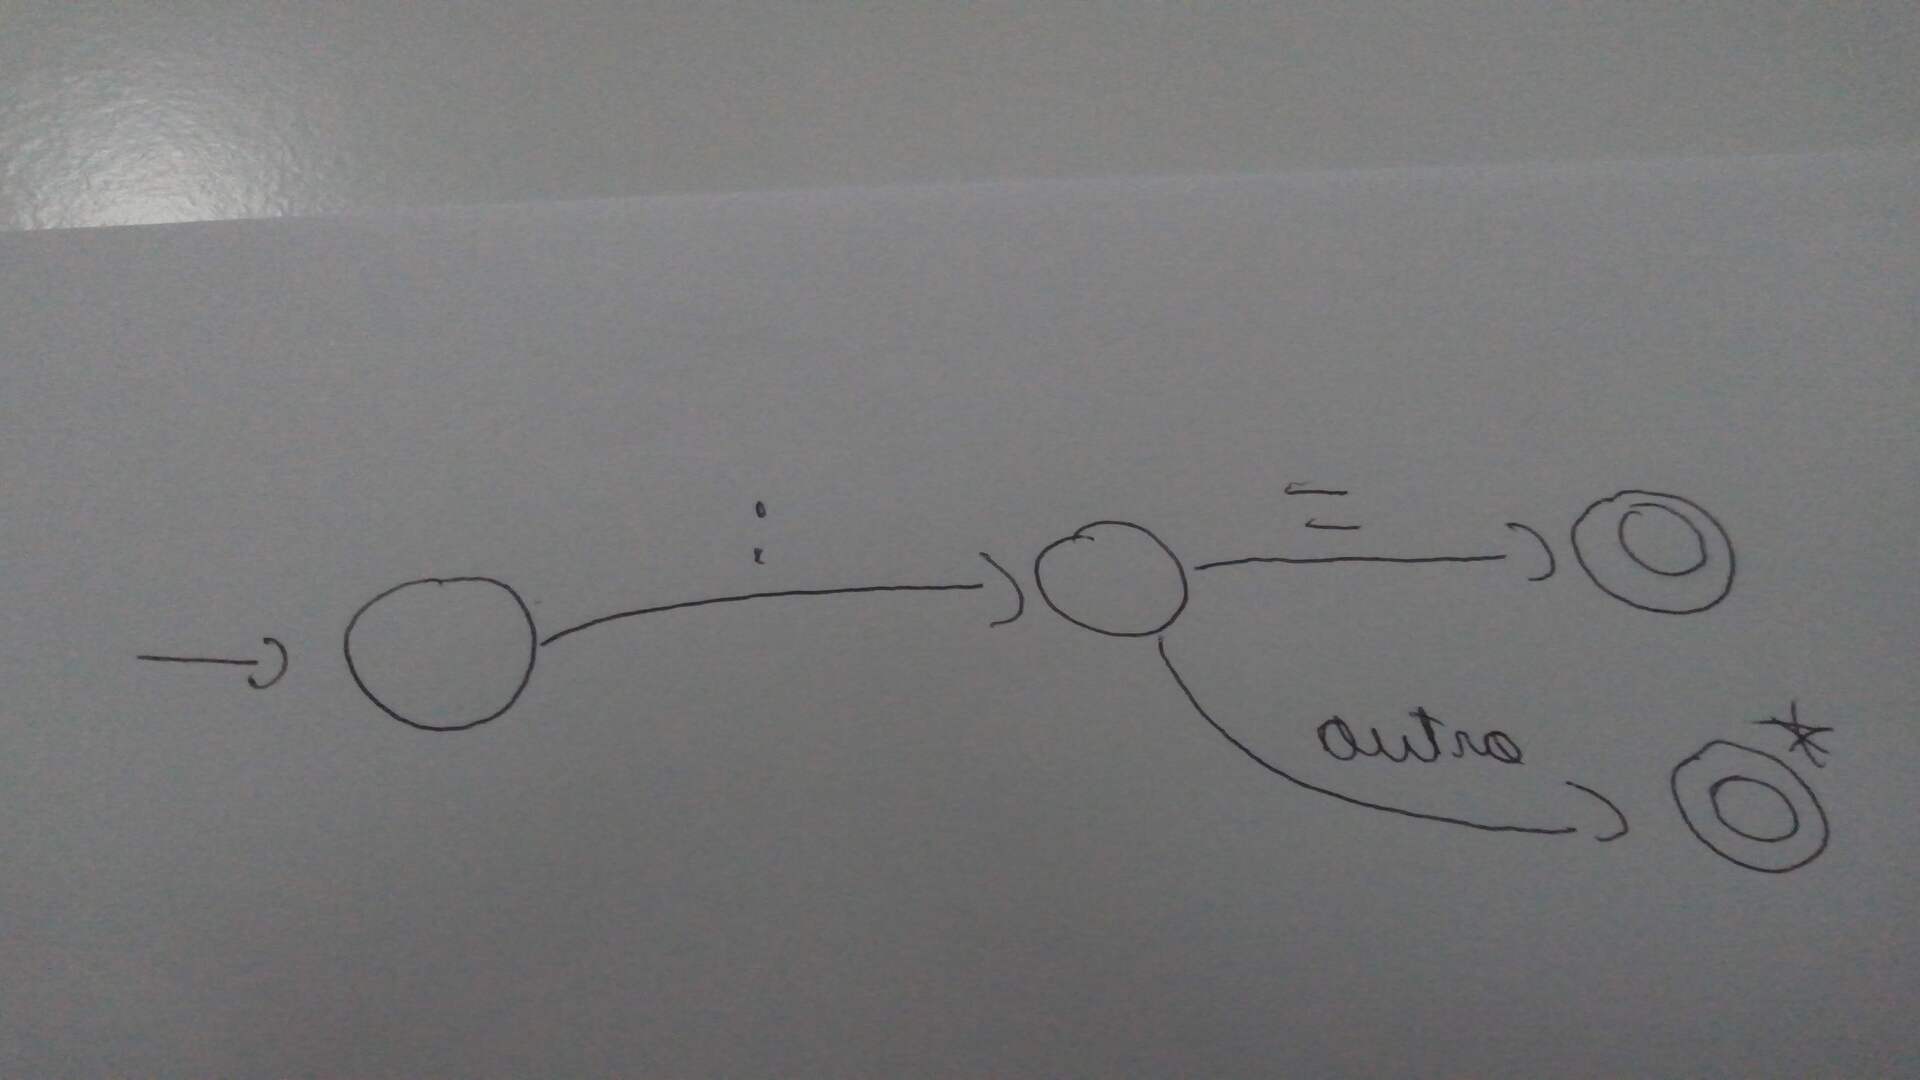 :
=
outro
*